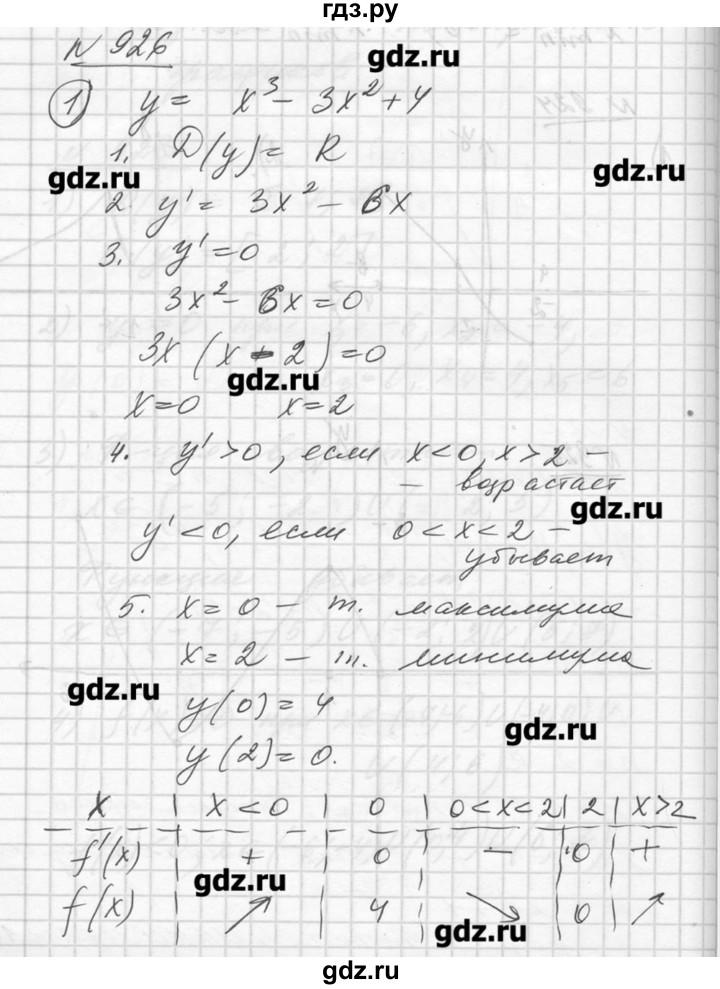 гдз.ру
№ 926
gdz.ru
1) y = x³ - 3x² + 4
1. D(y) = R
gdz.ru
gdz.ru
2. y' = 3x² - 6x
3. y' = 0
3x² - 6x = 0
3x (x - 2) = 0
gdz.ru
x = 0 x = 2
4. y' > 0, если x < 0, x > 2 –
– возрастает
gdz.ru
y' < 0, если 0 < x < 2 –
убывает
5. x = 0 – т. максимума
x = 2 – т. минимума
gdz.ru
y(0) = 4
gdz.ru
y(2) = 0.
x | x < 0 | 0 | 0 < x < 2 | 2 | x > 2
f'(x) | + | 0 | – | 0 | +
gdz.ru
f(x) | ↗ | 4 | ↘ | 0 | ↗
gdz.ru
gdz.ru